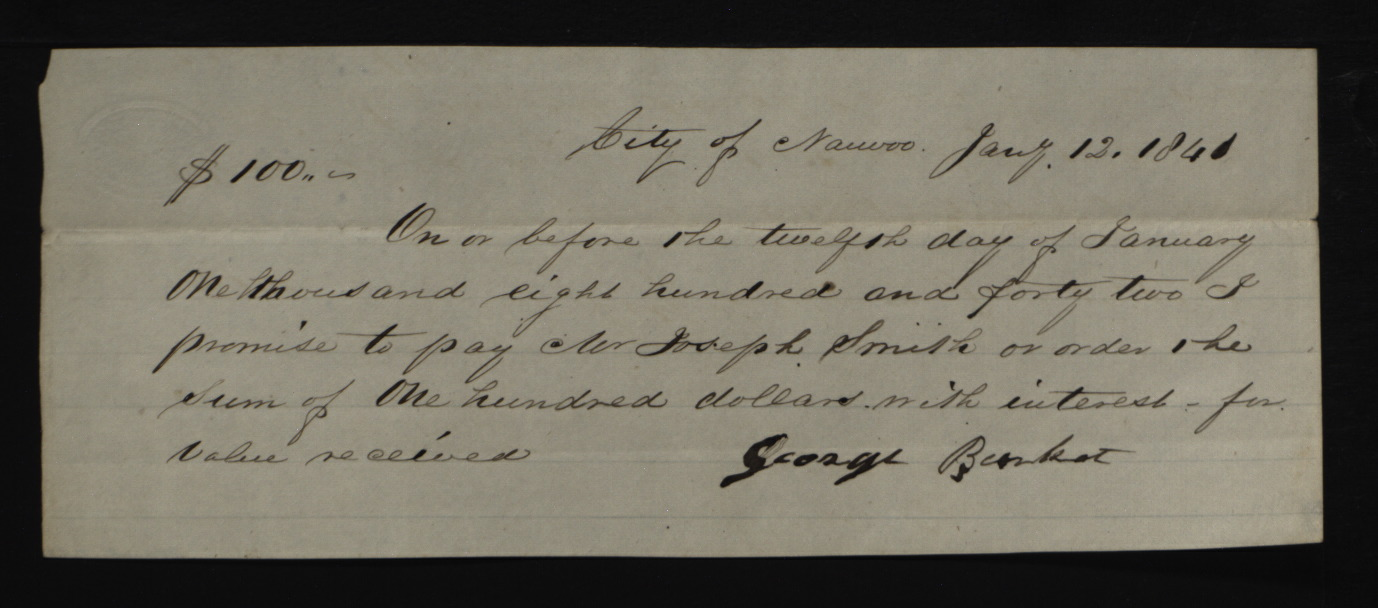 City of Nauvoo. Jany. 12. 1841
$100..
On or before the twelfth day of January
One thousand eight hundred and forty two I
promise to pay Mr Joseph Smith or order the
sum of One hundred dollars with interest - for
value received George Burket